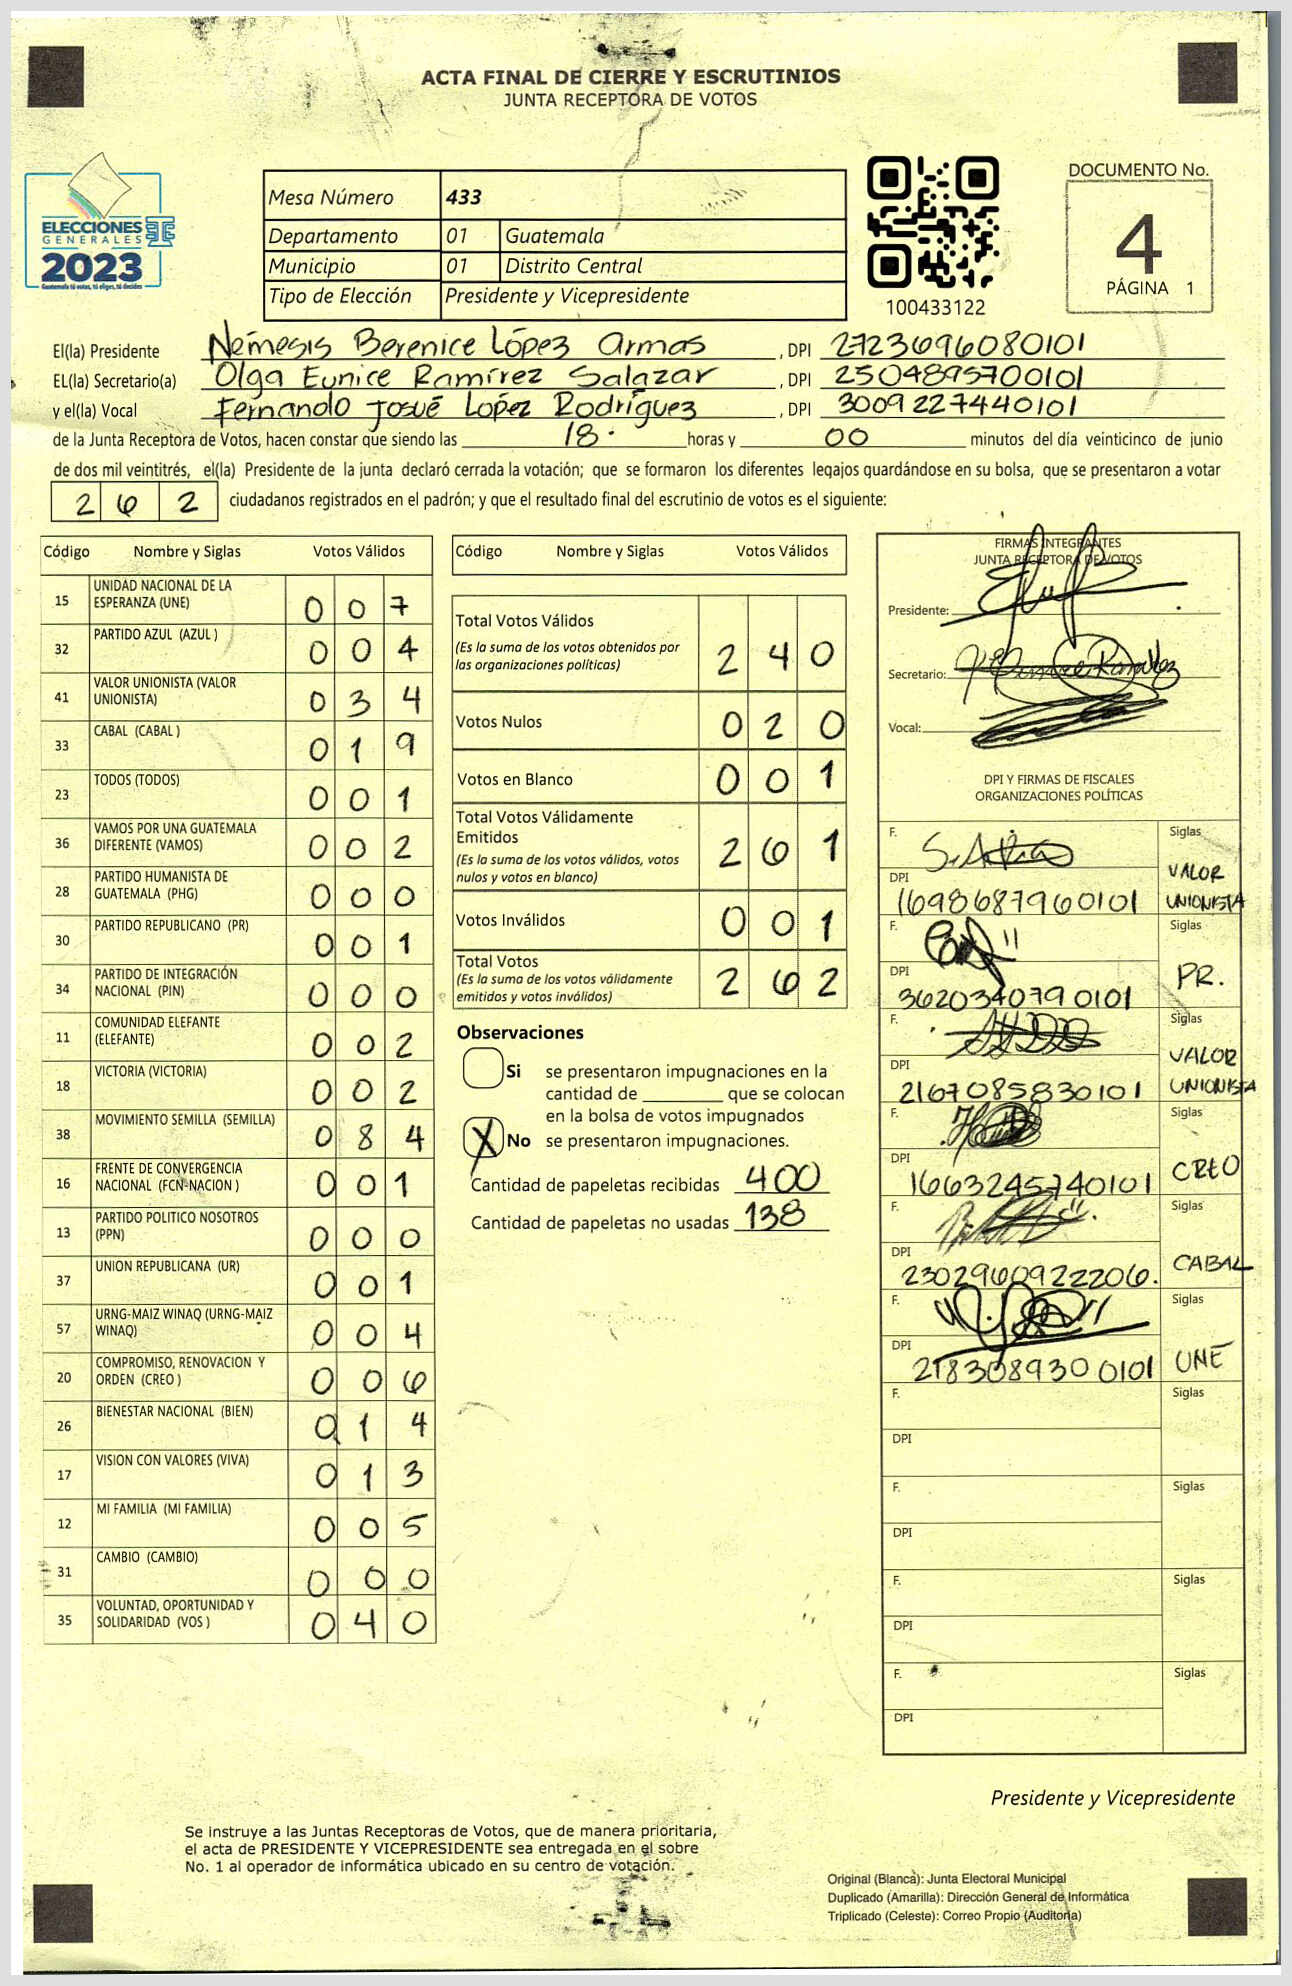 ACTA FINAL DE CIERRE Y ESCRUTINIOS
JUNTA RECEPTORA DE VOTOS
ELECCIONES
GENERALES
2023
Guatemala tú votas, tú eliges, tú decides
Mesa Número 433
Departamento 01 Guatemala
Municipio 01 Distrito Central
Tipo de Elección Presidente y Vicepresidente
100433122
DOCUMENTO No.
4
PÁGINA 1
El(la) Presidente Némesis Berenice López Armas , DPI 2723696080101
EL(la) Secretario(a) Olga Eunice Ramírez Salazar , DPI 2504895700101
y el(la) Vocal Fernando Josué López Rodríguez , DPI 3009227440101
de la Junta Receptora de Votos, hacen constar que siendo las 18. horas y 00 minutos del día veinticinco de junio
de dos mil veintitrés, el(la) Presidente de la junta declaró cerrada la votación; que se formaron los diferentes legajos guardándose en su bolsa, que se presentaron a votar
2 6 2 ciudadanos registrados en el padrón; y que el resultado final del escrutinio de votos es el siguiente:
Código Nombre y Siglas Votos Válidos
15 UNIDAD NACIONAL DE LA
ESPERANZA (UNE) 0 0 7
32 PARTIDO AZUL (AZUL ) 0 0 4
41 VALOR UNIONISTA (VALOR
UNIONISTA) 0 3 4
33 CABAL (CABAL ) 0 1 9
23 TODOS (TODOS) 0 0 1
36 VAMOS POR UNA GUATEMALA
DIFERENTE (VAMOS) 0 0 2
28 PARTIDO HUMANISTA DE
GUATEMALA (PHG) 0 0 0
30 PARTIDO REPUBLICANO (PR) 0 0 1
34 PARTIDO DE INTEGRACIÓN
NACIONAL (PIN) 0 0 0
11 COMUNIDAD ELEFANTE
(ELEFANTE) 0 0 2
18 VICTORIA (VICTORIA) 0 0 2
38 MOVIMIENTO SEMILLA (SEMILLA) 0 8 4
16 FRENTE DE CONVERGENCIA
NACIONAL (FCN-NACION ) 0 0 1
13 PARTIDO POLITICO NOSOTROS
(PPN) 0 0 0
37 UNION REPUBLICANA (UR) 0 0 1
57 URNG-MAIZ WINAQ (URNG-MAIZ
WINAQ) 0 0 4
20 COMPROMISO, RENOVACION Y
ORDEN (CREO ) 0 0 6
26 BIENESTAR NACIONAL (BIEN) 0 1 4
17 VISION CON VALORES (VIVA) 0 1 3
12 MI FAMILIA (MI FAMILIA) 0 0 5
31 CAMBIO (CAMBIO) 0 0 0
35 VOLUNTAD, OPORTUNIDAD Y
SOLIDARIDAD (VOS ) 0 4 0
Código Nombre y Siglas Votos Válidos
Total Votos Válidos
(Es la suma de los votos obtenidos por
las organizaciones políticas) 2 4 0
Votos Nulos 0 2 0
Votos en Blanco 0 0 1
Total Votos Válidamente
Emitidos
(Es la suma de los votos válidos, votos
nulos y votos en blanco) 2 6 1
Votos Inválidos 0 0 1
Total Votos
(Es la suma de los votos válidamente
emitidos y votos inválidos) 2 6 2
Observaciones
Si se presentaron impugnaciones en la
cantidad de ________ que se colocan
en la bolsa de votos impugnados
X No se presentaron impugnaciones.
Cantidad de papeletas recibidas 400
Cantidad de papeletas no usadas 138
FIRMAS INTEGRANTES
JUNTA RECEPTORA DE VOTOS
Presidente:
Secretario:
Vocal:
DPI Y FIRMAS DE FISCALES
ORGANIZACIONES POLÍTICAS
F. Siglas
VALOR
UNIONISTA
DPI
1698687960101
F. Siglas
PR.
DPI
3620340790101
F. Siglas
VALOR
UNIONISTA
DPI
2167085830101
F. Siglas
CREO
DPI
1663245740101
F. Siglas
CABAL
DPI
2302960922206.
F. Siglas
UNE
DPI
2183089300101
F. Siglas
DPI
F. Siglas
DPI
F. Siglas
DPI
F. Siglas
DPI
Presidente y Vicepresidente
Se instruye a las Juntas Receptoras de Votos, que de manera prioritaria,
el acta de PRESIDENTE Y VICEPRESIDENTE sea entregada en el sobre
No. 1 al operador de informática ubicado en su centro de votación.
Original (Blanca): Junta Electoral Municipal
Duplicado (Amarilla): Dirección General de Informática
Triplicado (Celeste): Correo Propio (Auditoría)